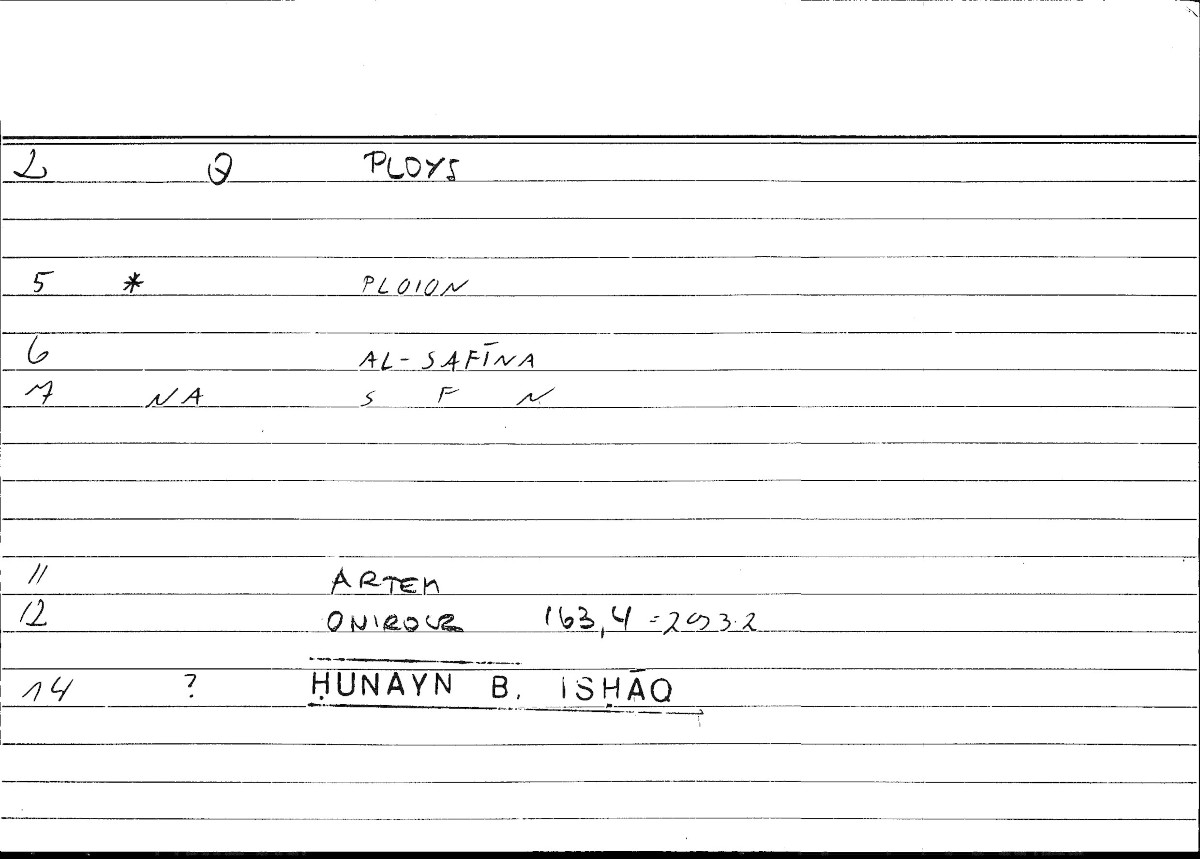 2 Q PLOYS
5 * PLOION
6 AL-SAFĪNA
7 NA S F N
11 ARTEM
12 ONIROCR 163,4 =
14 ? ḤUNAYN B. ISḤĀQ